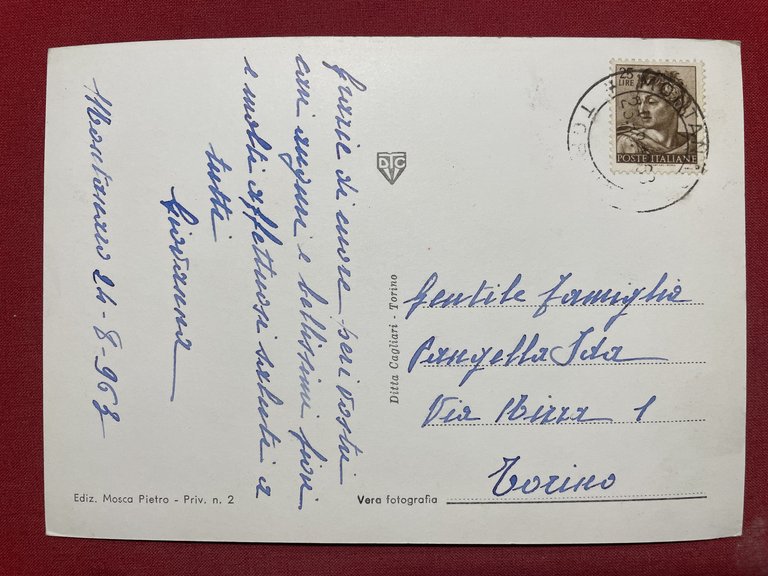 Montanaro 24-8-963
Grazie di cuore per i vostri
cari auguri e bellissimi fiori
e molti affettuosi saluti a
tutti
Giovanna
Ediz. Mosca Pietro - Priv. n. 2
DTC
Ditta Cagliari - Torino
Vera fotografia
25
LIRE
POSTE ITALIANE
MONTANA
TO
Gentile Famiglia
Pangella Ida
Via 1
Torino